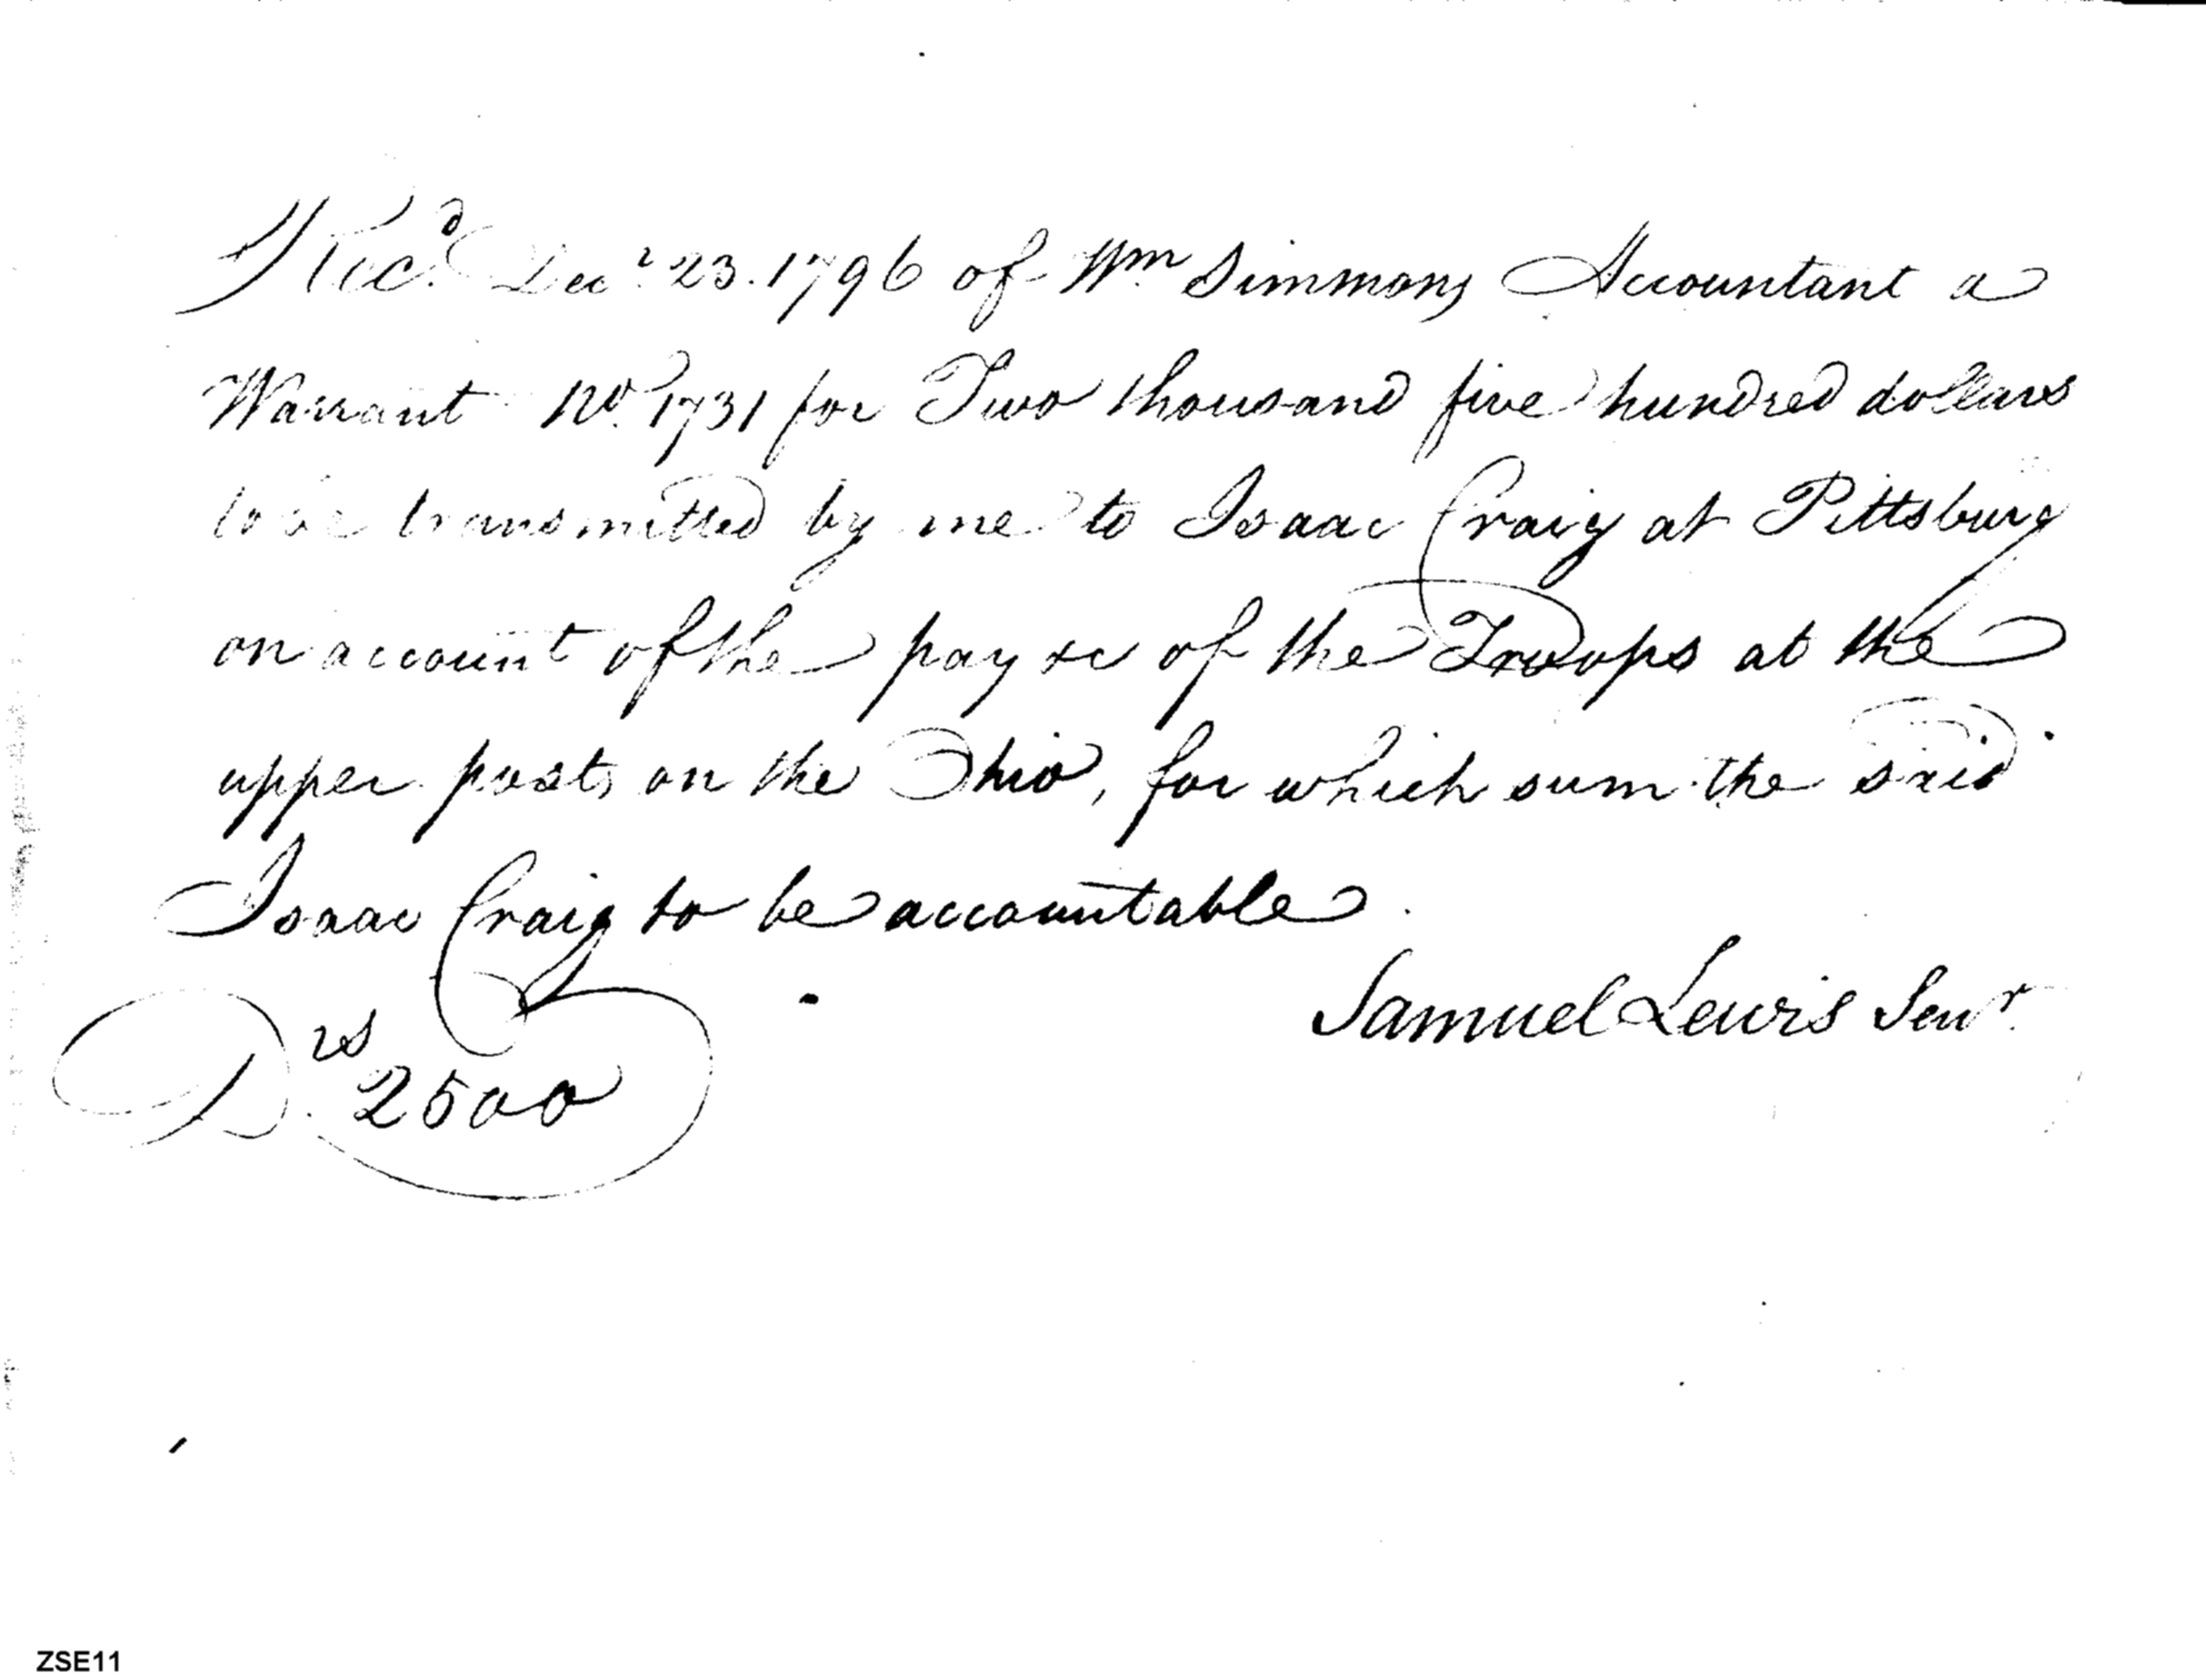 Rec.d Decr. 23. 1796 of Wm Simmons Accountant a
Warrant No. 1731 for Two thousand five hundred dollars
to be transmitted by me to Isaac Craig at Pittsburg
on account of the pay &c of the Troops at the
upper posts on the Ohio, for which sum the said
Isaac Craig to be accountable.
Samuel Lewis Senr.
Drs. 2500
ZSE11